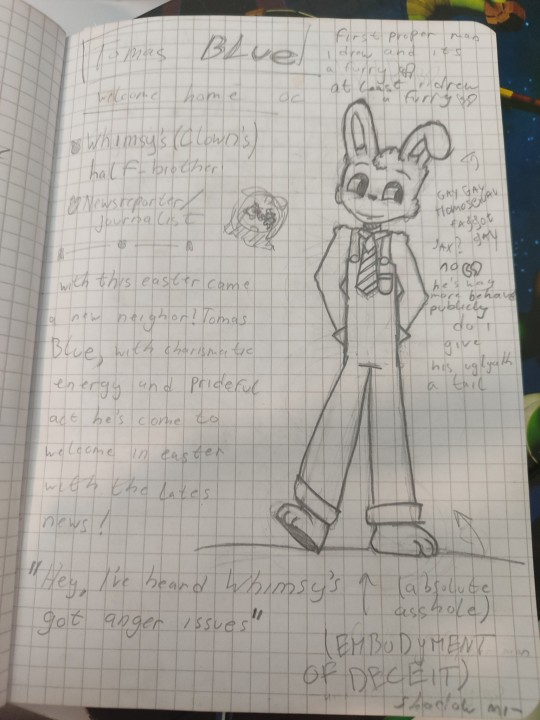 Tomas BLUE
First proper man
i drew and it's
a furry
at least i drew
a furry
welcome home oc
Whimsy's (Clown's)
half-brother
Newsreporter/
journalist
GAY GAY
Homosexual
faggot
GAY
JAX?
no
he's way
more behaved
publicly
do i
give
his uglyath
a tail
with this easter came
a new neighor! Tomas
Blue, with charismatic
energy and prideful
act he's come to
welcome in easter
with the lates
news!
"Hey, I've heard Whimsy's
got anger issues"
(absolute
asshole)
(EMBODYMENT
OF DECEIT)